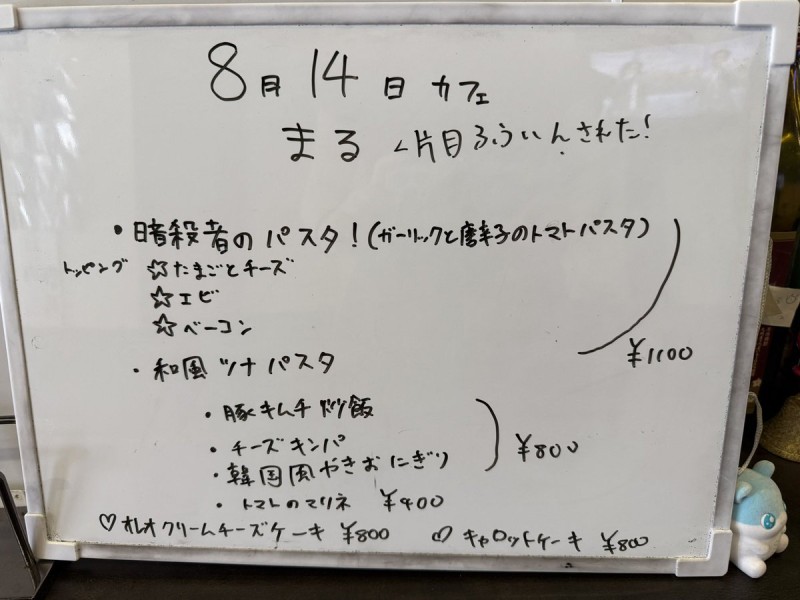 8月14日 カフェ
まる 片目ふういんされた!
・暗殺者のパスタ!(ガーリックと唐辛子のトマトパスタ)
トッピング ☆たまごとチーズ
☆エビ
☆ベーコン
・和風ツナパスタ
¥1100
・豚キムチ炒飯
・チーズキンパ
¥800
・韓国風やきおにぎり
・トマトのマリネ ¥400
♡オレオクリームチーズケーキ ¥800 ♡キャロットケーキ ¥800